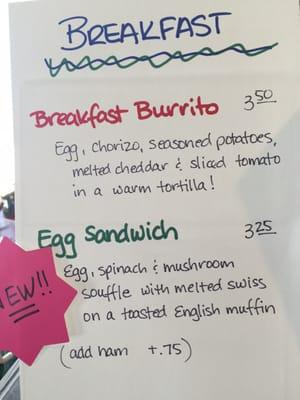 BREAKFAST
Breakfast Burrito 3.50
Egg, chorizo, seasoned potatoes,
melted cheddar & sliced tomato
in a warm tortilla!
Egg Sandwich 3.25
Egg, spinach & mushroom
souffle with melted swiss
on a toasted English muffin
(add ham +.75)
NEW!!